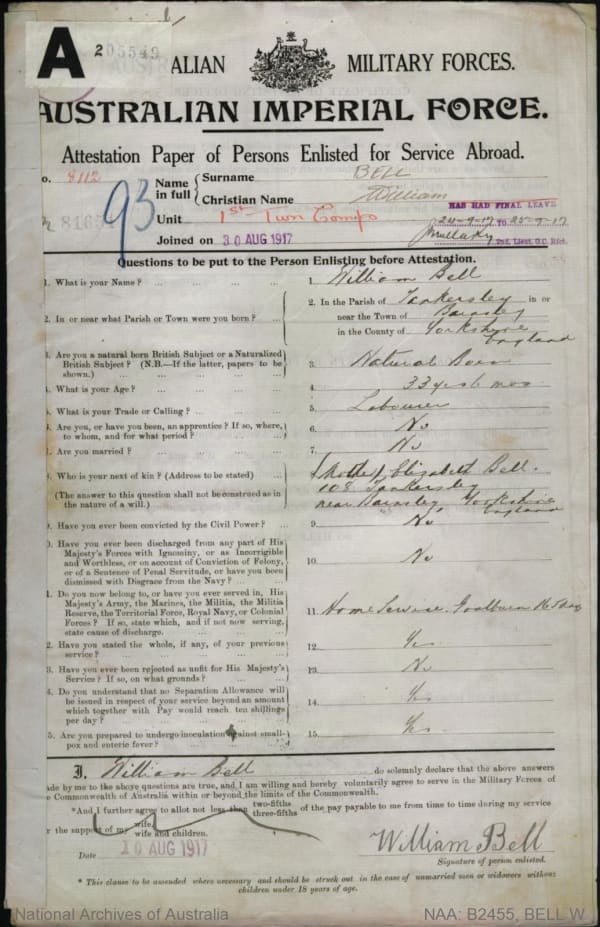 A 205549
ALIAN MILITARY FORCES.
AUSTRALIAN IMPERIAL FORCE.
Attestation Paper of Persons Enlisted for Service Abroad.
o. 8112
Name in full
Surname BELL
Christian Name William
HAS HAD FINAL LEAVE
93
Unit 1st Tun Comps
24-9-17 TO 25-9-17
2nd. Lieut. O.C. Rfct.
Joined on 30 AUG 1917
Questions to be put to the Person Enlisting before Attestation.
1. What is your Name? ... 1. William Bell
2. In or near what Parish or Town were you born? ... 2. In the Parish of Tankersley in or
near the Town of Barnsley
in the County of Yorkshire
England
3. Are you a natural born British Subject or a Naturalized
British Subject? (N.B.—If the latter, papers to be
shown.) 3. Natural Born
4. What is your Age? ... 4. 33 yrs 6 mos
5. What is your Trade or Calling? ... 5. Labourer
6. Are you, or have you been, an apprentice? If so, where,
to whom, and for what period? 6. No
7. Are you married? ... 7. No
8. Who is your next of kin? (Address to be stated) ... (Mother) Elizabeth Bell.
108 Tankersley
(The answer to this question shall not be construed as in
the nature of a will.)
near Barnsley, Yorkshire
England
9. Have you ever been convicted by the Civil Power? ... 9. No
0. Have you ever been discharged from any part of His
Majesty's Forces with Ignominy, or as Incorrigible
and Worthless, or on account of Conviction of Felony,
or of a Sentence of Penal Servitude, or have you been
dismissed with Disgrace from the Navy? ... 10. No
1. Do you now belong to, or have you ever served in, His
Majesty's Army, the Marines, the Militia, the Militia
Reserve, the Territorial Force, Royal Navy, or Colonial
Forces? If so, state which, and if not now serving,
state cause of discharge. 11. Home Service. Goulburn
2. Have you stated the whole, if any, of your previous
service? ... 12. Yes
3. Have you ever been rejected as unfit for His Majesty's
Service? If so, on what grounds? 13. No
4. Do you understand that no Separation Allowance will
be issued in respect of your service beyond an amount
which together with Pay would reach ten shillings
per day? 14. Yes
5. Are you prepared to undergo inoculation against small-
pox and enteric fever? 15. Yes
I, William Bell do solemnly declare that the above answers
ade by me to the above questions are true, and I am willing and hereby voluntarily agree to serve in the Military Forces of
e Commonwealth of Australia within or beyond the limits of the Commonwealth.
*And I further agree to allot not less than two-fifths three-fifths of the pay payable to me from time to time during my service
or the support of my wife. wife and children.
Date 10 AUG 1917
William Bell
Signature of person enlisted.
* This clause to be amended where necessary and should be struck out in the case of unmarried men or widowers without
children under 18 years of age.
National Archives of Australia NAA: B2455, BELL W